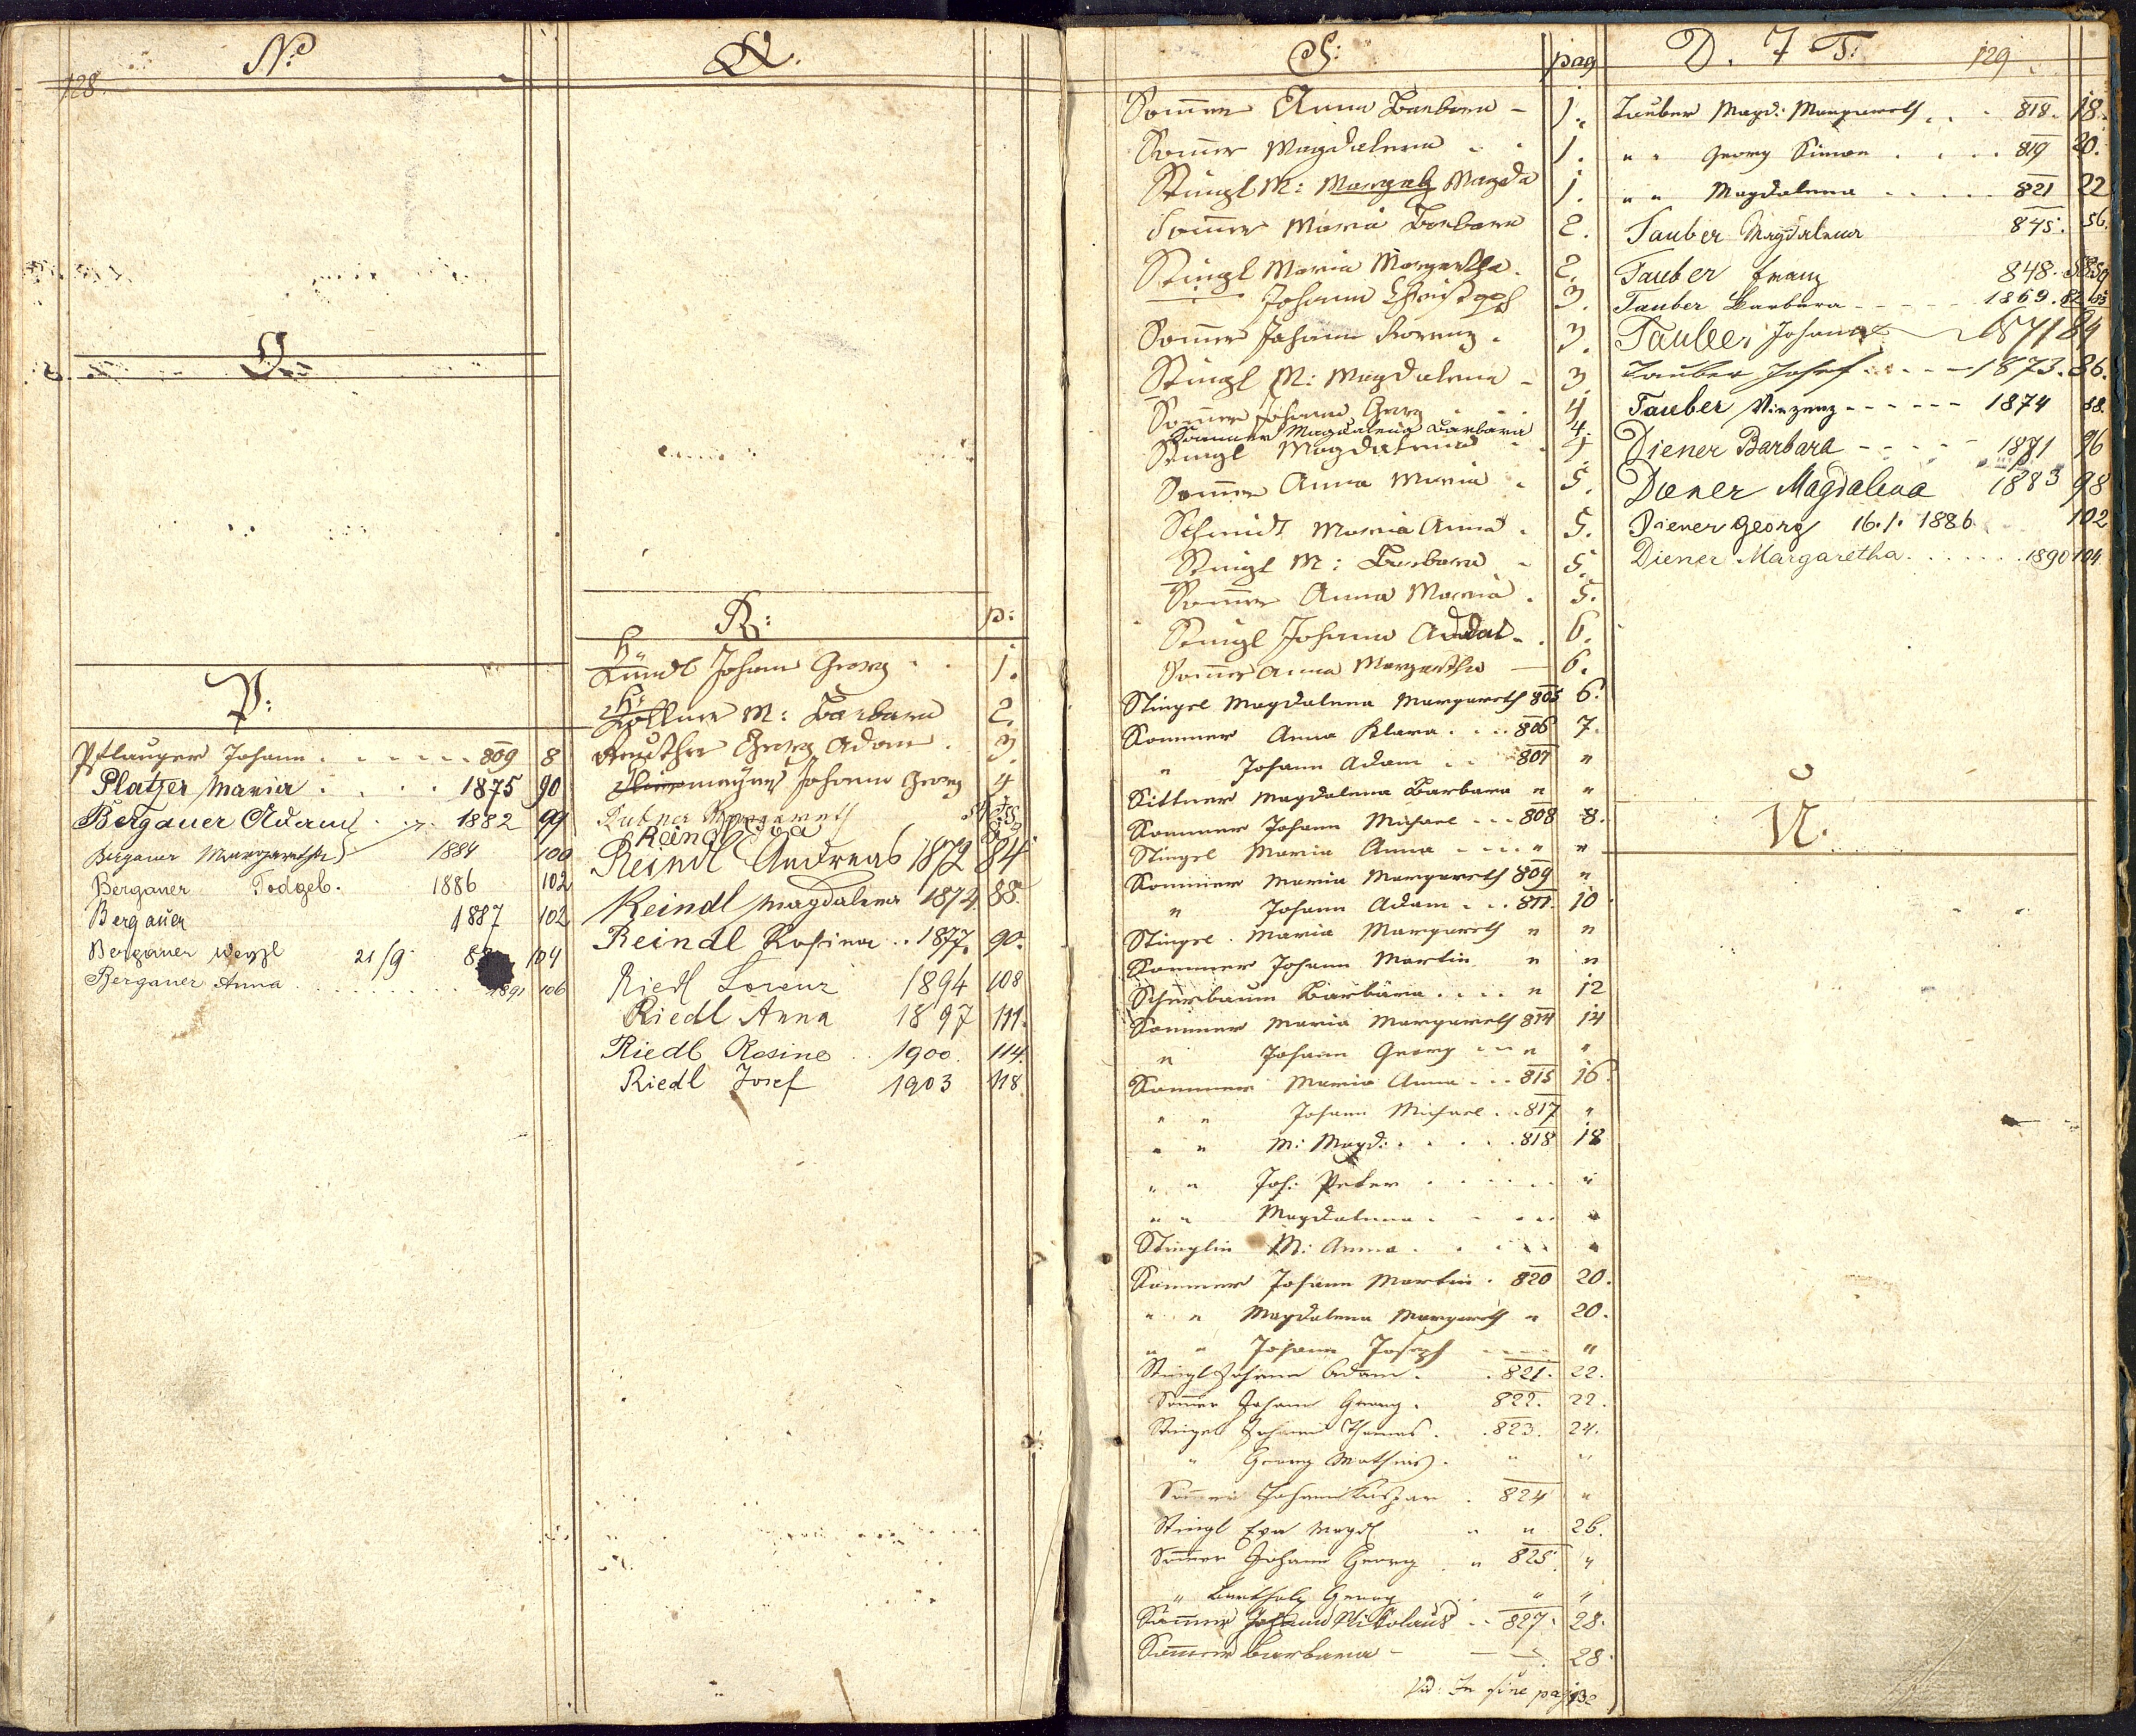 128.
N:
O.
P:
Pflauger Johann . . . . . . 809 8
Platzer Maria . . . . 1875 90
Bergauer Adam 1882 99
Bergauer Margaretha 1884 100
Bergauer Todgeb. 1886 102
Bergauer 1887 102
Bergauer 21/9 104
Bergauer Anna . . . . . . . . . 1891 106
Q.
R: p:
Kundl Johann Georg . . 1.
M: Barbara 2.
Reuther Georg Adam . 3.
Johann Georg 4
Margareth
Reindl Eva
Reindl Andreas 1872 84
Reindl Magdalena 1874 88.
Reindl Rosina . . 1877. 90.
Riedl Lorenz 1894 108
Riedl Anna 1897 111.
Riedl Rosine . . 1900. 114.
Riedl Josef 1903 118.
S: pag
Som̄er Anna Barbara - 1.
Som̄er Magdalena . . 1.
Stingl M: Margeth Magda 1.
Som̄er Maria Barbara 2.
Stingl Maria Margaretha . 2.
Johann Christoph 3.
Som̄er Johann Lorenz . 3.
Stingl M: Magdalena - 3.
Som̄er Johann Georg 4
Sommer Magdalena Barbara 4.
Stingl Magdalena - . 4
Som̄er Anna Maria . 5.
Schmidt Maria Anna . 5.
Stingl M: Barbara - 5.
Som̄er Anna Maria . 5.
Stingl Johann Adam . 6.
Som̄er Anna Margaretha — 6.
Stingel Magdalena Margareth 805 6.
Sommer Anna Klara . . . 806 7.
" Johann Adam . . 807 "
Kittner Magdalena Barbara " "
Sommer Johann Michael . . . 808 8.
Stingel Maria Anna . . . . " "
Sommer Maria Margareth 809 "
" Johann Adam . . . 811. 10
Stingel Maria Margareth " "
Sommer Johann Martin " "
Scherbaum Barbara . . . . " 12
Sommer Maria Margareth 814 14
" Johann Georg . . . " "
Sommer Maria Anna . . . 815 16.
" " Johann Michael . . 817 "
" " M: Magd: . . . . . 818 18
" " Joh: Peter . . . . . . "
" " Magdalena . . . . . "
Stinglin M: Anna . . . . . "
Sommer Johann Martin . 820 20.
" " Magdalena Margareth " 20.
" " Johann Joseph . . . . "
Stingl Johann Adam . . 821. 22.
Som̄er Johann Georg . 822. 22.
Stingel Johann Thomas . . 823. 24.
" Georg Mathias . " "
Som̄er Johann Kaspar . 824 "
Stingl Eva Magd. " " 26.
Som̄er Johann Georg . " 825. "
" Barthol: Georg " "
Som̄er Johann Nikolaus . . 827. 28.
Som̄er Barbara - — — 28.
vid. In fine pag. 132
D. & T: 129
Tauber Magd: Margareth . . . 818. 18.
" " Georg Simon . . . . 819 20.
" " Magdalena . . . . . 821 22
Tauber Magdalena 845. 56.
Tauber Franz 848.
Tauber Barbara - - - - 1869. 82
Tauber Johann 1871 84
Tauber Josef . . . - - 1873. 86.
Tauber Vinzenz - - - - - - 1874 88.
Diener Barbara - - - - - 1881 96
Diener Magdalena 1883 98
Diener Georg 16.1. 1886. 102
Diener Margaretha . . . . . . 1890 104
U.